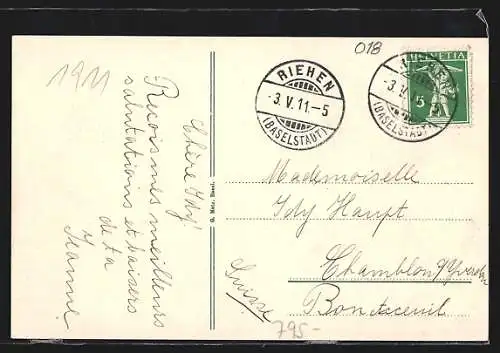 1911
018
HELVETIA
5
RIEHEN
-3.V.11.-5
(BASELSTADT)
-3.V
(BASELSTADT)
Chère Idy!
Recois mes meilleurs
salutations et baisers
de ta
Jeanne
G. Metz, Basel.
Mademoiselle
Idy Haupt
Chamblon s/Yverdon
Bon Acceuil
Suisse
795-